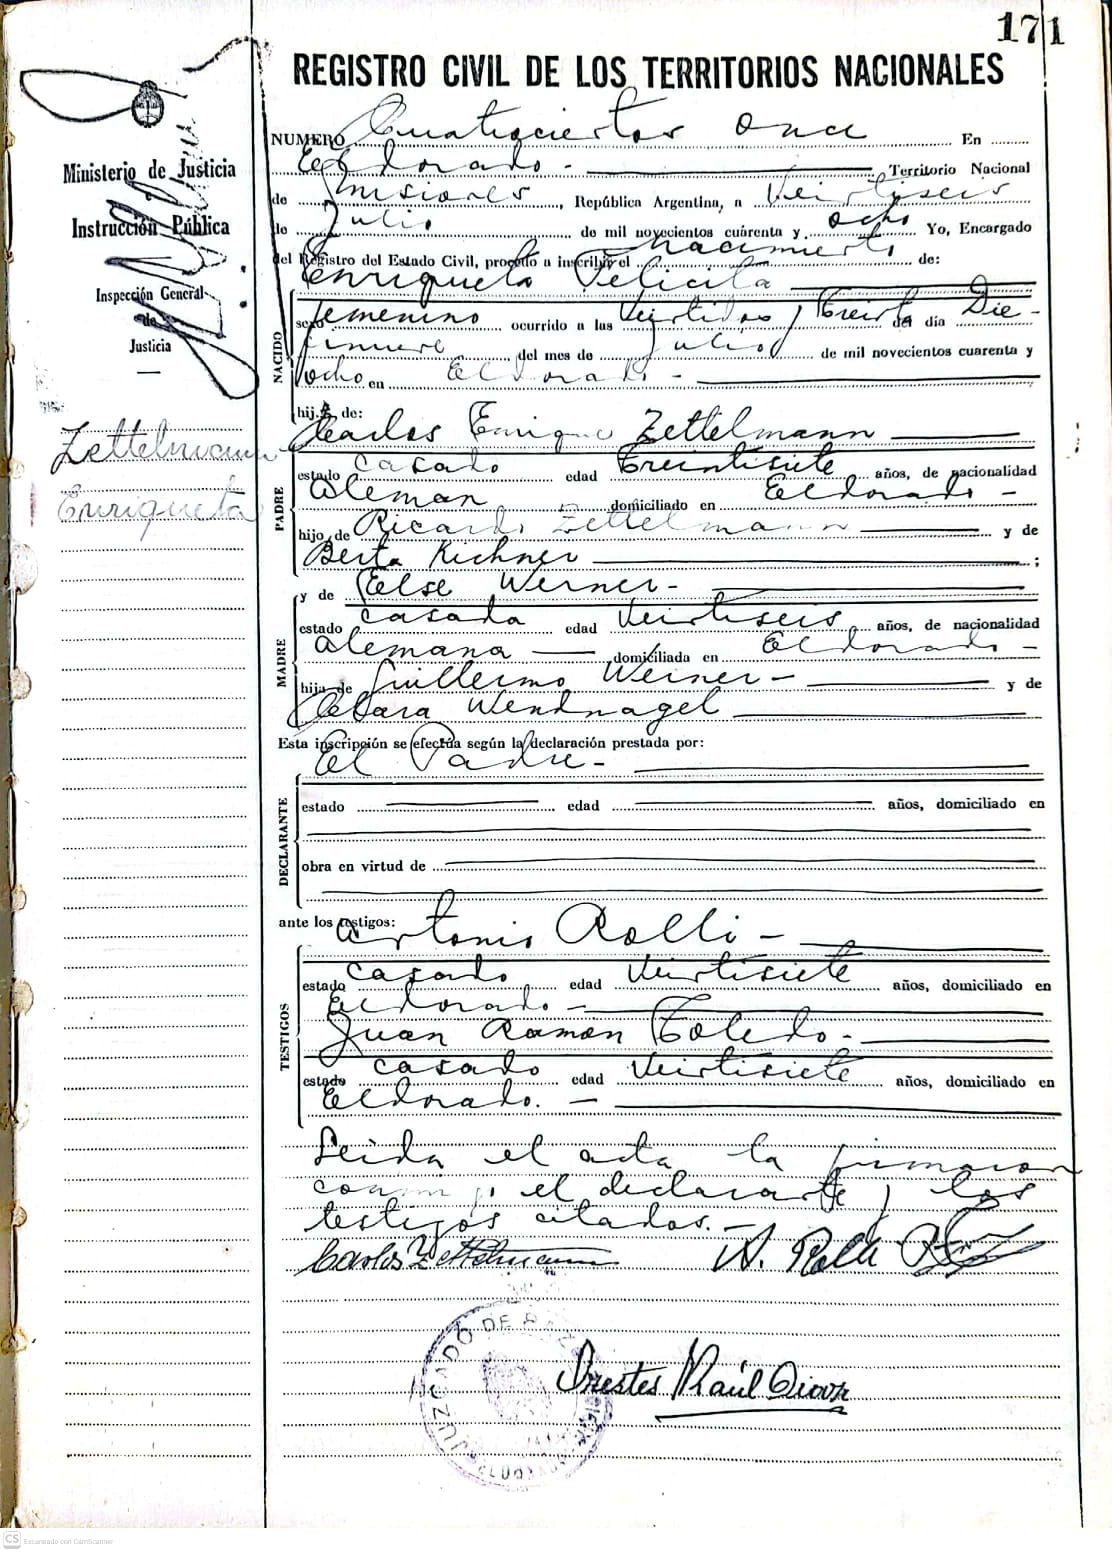 171
REGISTRO CIVIL DE LOS TERRITORIOS NACIONALES
Ministerio de Justicia
Instrucción Pública
Inspección General
de
Justicia
Zettelmann
Enriqueta
NUMERO Cuatrocientos once En
Eldorado - Territorio Nacional
de Misiones, República Argentina, a Veintiseis
de Julio de mil novecientos cuarenta y ocho Yo, Encargado
del Registro del Estado Civil, procedo a inscribir el nacimiento de:
NACIDO
Enriqueta Felicita
sexo femenino ocurrido a las Veintidos y Treinta del día Die-
cinueve del mes de Julio de mil novecientos cuarenta y
ocho en Eldorado -
hija de:
Carlos Enrique Zettelmann
PADRE
estado casado edad Treintisiete años, de nacionalidad
Aleman domiciliado en Eldorado -
hijo de Ricardo Zettelmann y de
Berta Kichner ;
y de Else Werner -
MADRE
estado casada edad Veintiseis años, de nacionalidad
alemana domiciliada en Eldorado -
hija de Guillermo Werner - y de
Clara Wendnagel
Esta inscripción se efectúa según la declaración prestada por:
El Padre -
DECLARANTE
estado edad años, domiciliado en
obra en virtud de
ante los testigos:
Antonio Rolli -
TESTIGOS
estado casado edad Veintisiete años, domiciliado en
Eldorado -
Juan Ramón Toledo -
estado casado edad Veintisiete años, domiciliado en
Eldorado. -
Leida el acta la firmaron
conmigo el declarante y los
testigos citados. -
Carlos Zettelmann A. Rolli
JUZGADO DE PAZ
Orestes Raúl Diaz
CS Escaneado con CamScanner